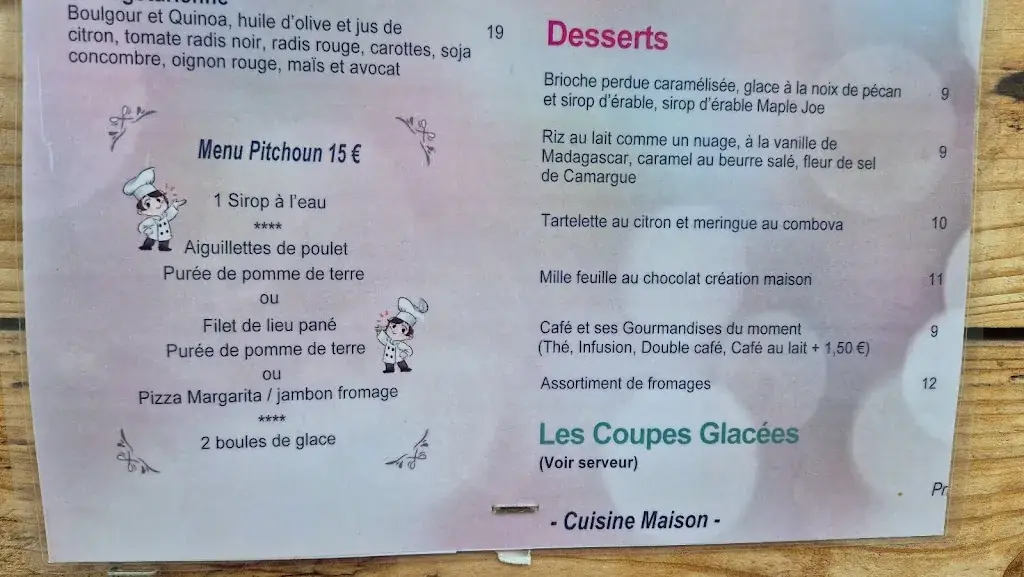 Boulgour et Quinoa, huile d'olive et jus de
citron, tomate radis noir, radis rouge, carottes, soja
concombre, oignon rouge, maïs et avocat
19
Menu Pitchoun 15 €
1 Sirop à l'eau
****
Aiguillettes de poulet
Purée de pomme de terre
ou
Filet de lieu pané
Purée de pomme de terre
ou
Pizza Margarita / jambon fromage
****
2 boules de glace
Desserts
Brioche perdue caramélisée, glace à la noix de pécan
et sirop d'érable, sirop d'érable Maple Joe
9
Riz au lait comme un nuage, à la vanille de
Madagascar, caramel au beurre salé, fleur de sel
de Camargue
9
Tartelette au citron et meringue au combova
10
Mille feuille au chocolat création maison
11
Café et ses Gourmandises du moment
(Thé, Infusion, Double café, Café au lait + 1,50 €)
9
Assortiment de fromages
12
Les Coupes Glacées
(Voir serveur)
Pr
- Cuisine Maison -